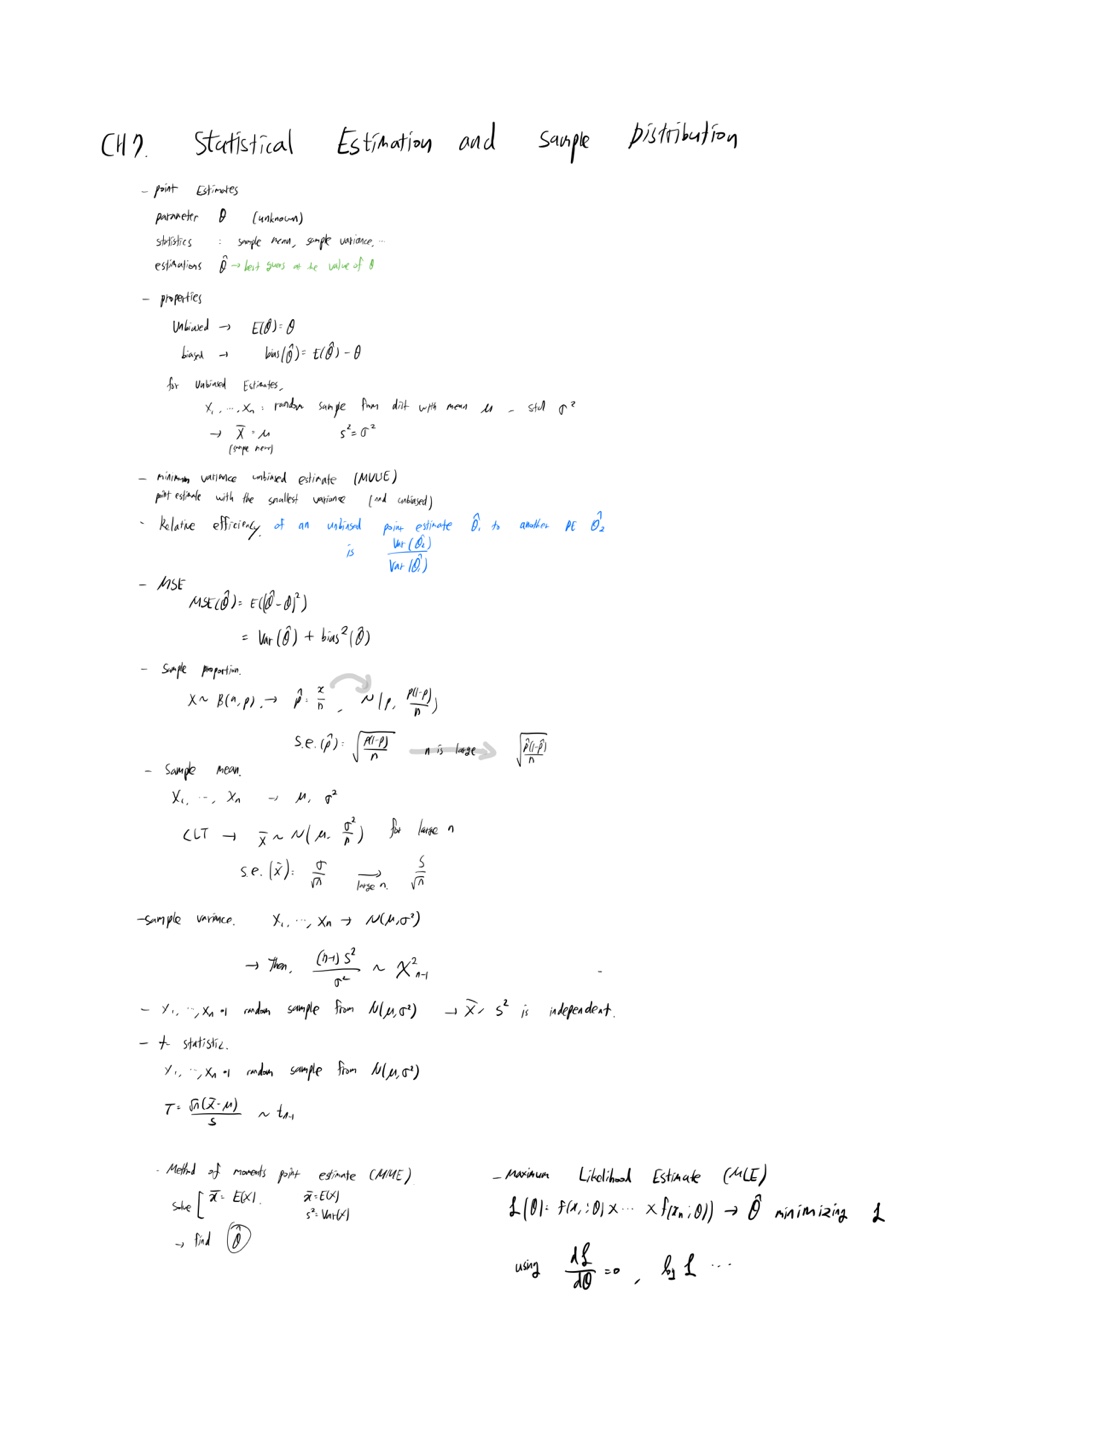 CH7. Statistical Estimation and sample Distribution
- point Estimates
parameter θ (unknown)
statistics : sample mean, sample variance, ...
estimations θ̂ → best guess at the value of θ
- properties
Unbiased → E(θ̂) = θ
biased → bias(θ̂) = E(θ̂) - θ
for Unbiased Estimates,
X₁, ..., Xₙ : random sample from dist with mean μ, std σ²
→ X̄ = μ s² = σ²
(sample mean)
- minimum variance unbiased estimate (MVUE)
point estimate with the smallest variance (and unbiased)
- Relative efficiency of an unbiased point estimate θ̂₁ to another PE θ̂₂
is Var(θ̂₂) / Var(θ̂₁)
- MSE
MSE(θ̂) = E((θ̂-θ)²)
= Var(θ̂) + bias²(θ̂)
- Sample proportion.
X ~ B(n, p), → p̂ = x/n, ~ N(p, p(1-p)/n)
s.e.(p̂) = √(p(1-p)/n) n is large → √(p̂(1-p̂)/n)
- Sample mean.
X₁, ..., Xₙ → μ, σ²
CLT → x̄ ~ N(μ, σ²/n) for large n
s.e.(x̄) = σ/√n → large n. s/√n
- sample variance. X₁, ..., Xₙ → N(μ, σ²)
→ Then, (n-1)S²/σ² ~ χ²ₙ₋₁
- X₁, ..., Xₙ random sample from N(μ, σ²) → X̄, S² is independent.
- t statistic.
X₁, ..., Xₙ random sample from N(μ, σ²)
T = √n(X̄-μ)/S ~ tₙ₋₁
- Method of moments point estimate (MME)
Solve [ x̄ = E(X). x̄ = E(X)
s² = Var(X)
→ find θ̂
- Maximum Likelihood Estimate (MLE)
L(θ) = f(x₁;θ) × ... × f(xₙ;θ)) → θ̂ minimizing L
using dL/dθ = 0, log L ...